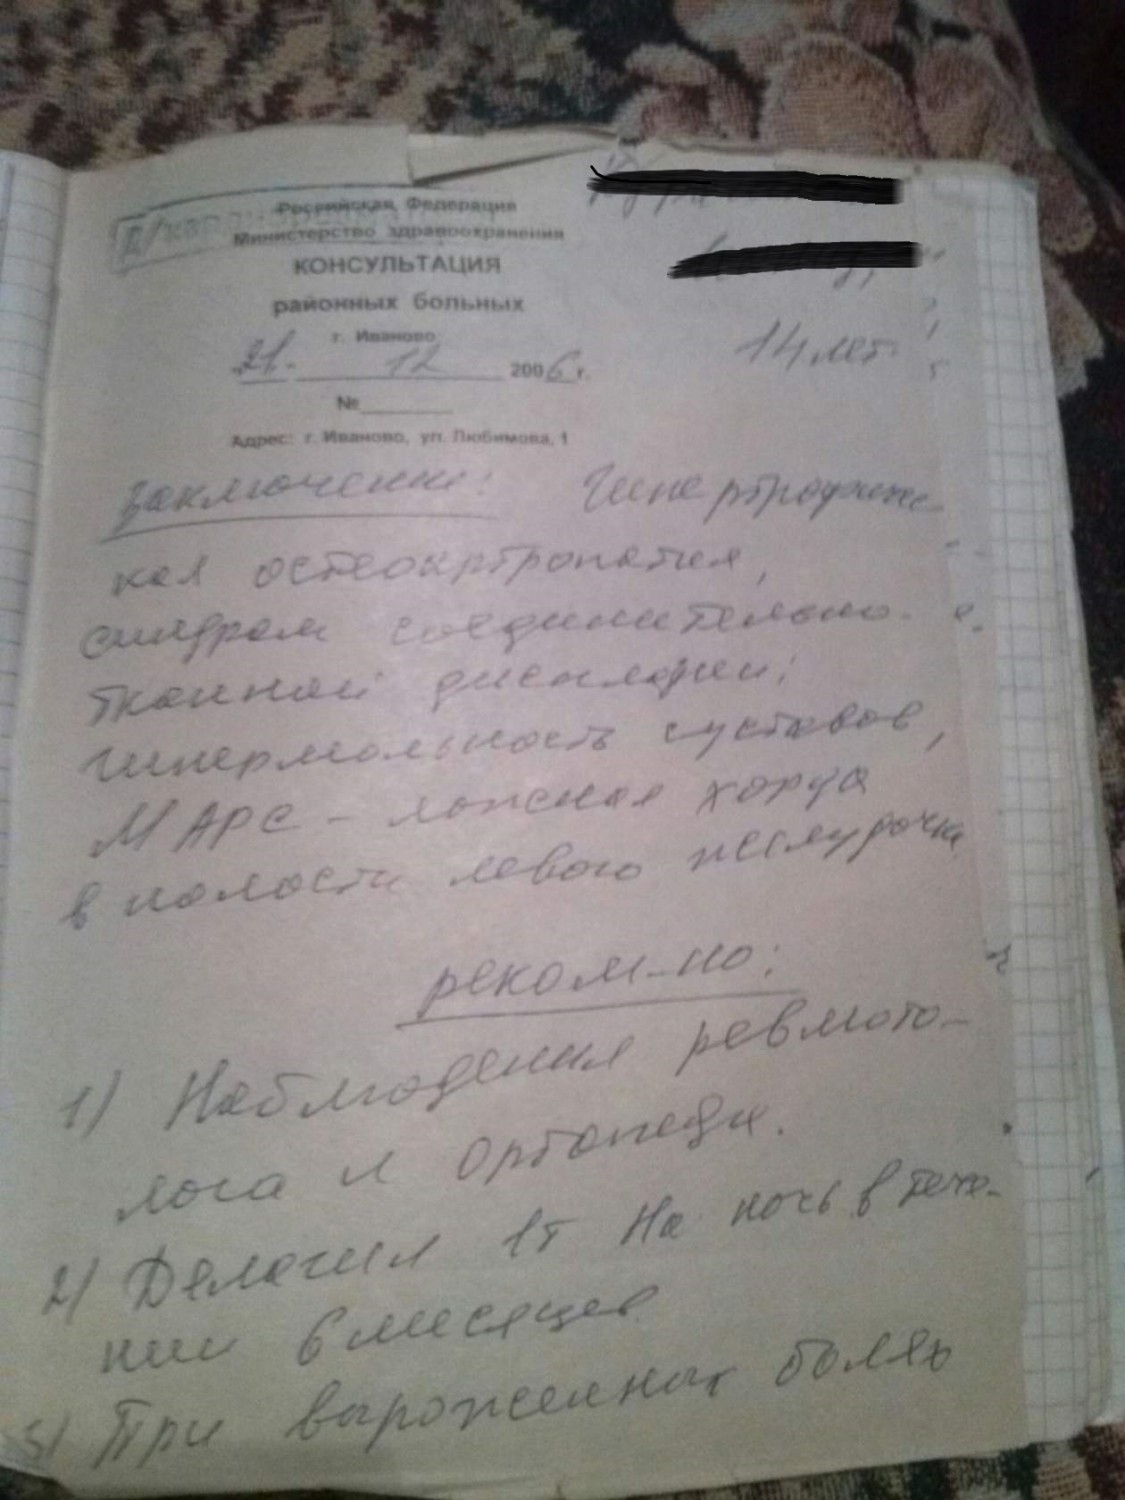 Российская Федерация
Министерство здравоохранения
КОНСУЛЬТАЦИЯ
районных больных
г. Иваново
21. 12 2006 г.
14 лет
№
Адрес: г. Иваново, ул. Любимова, 1
Заключение:
кая остеоартропатия,
синдром соединительно-
тканной дисплазии;
гипермобильность суставов,
МАРС - ложная хорда
в полости левого желудочка
реком-но:
1) Наблюдения ревмато-
лога и ортопеда.
2) Делагил 1т на ночь в тече-
нии 6 месяцев
3) При выраженных болях